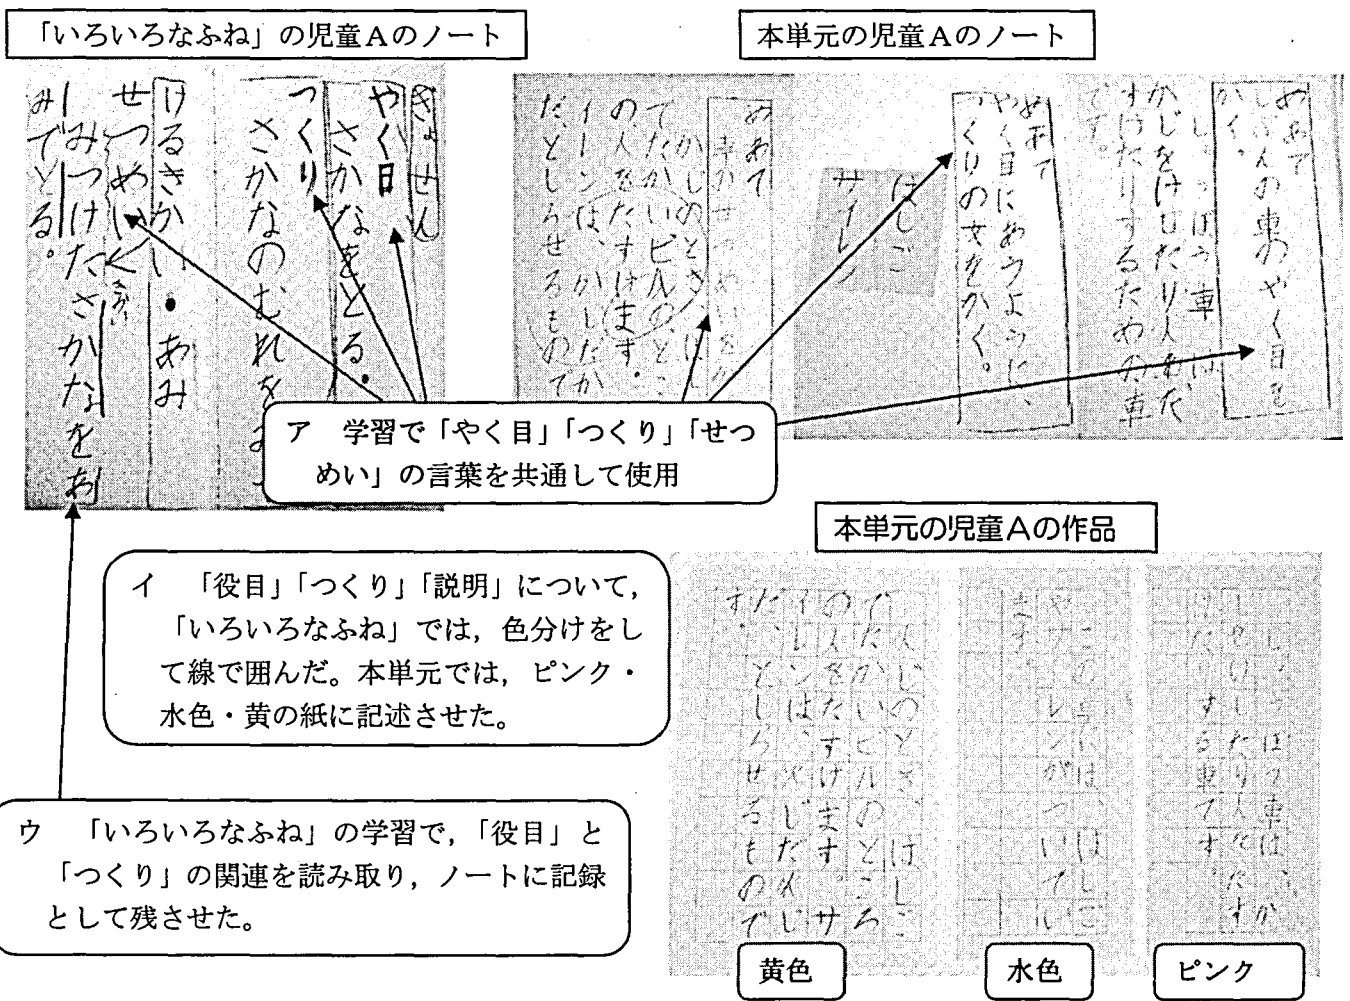 「いろいろなふね」の児童Aのノート
ぎょせん
やく目
さかなをとる。
つくり
さかなのむれを
けるきかい・あみ
せつめい
みつけたさかなをあ
みでとる。
本単元の児童Aのノート
めあて
じぶんの車のやく目を
かく。
しょうぼう車は、
かじをけしたり人をた
すけたりするための車
です。
めあて
やく目にあうように、
つくりの文をかく。
はしご
サイレン
めあて
車のせつめいをか
かじのとき、はし
でたかいビルのとこ
の人をたすけます。
イレンは、かじだか
だ、としらせるもので
ア 学習で「やく目」「つくり」「せつ
めい」の言葉を共通して使用
イ 「役目」「つくり」「説明」について，
「いろいろなふね」では，色分けをし
て線で囲んだ。本単元では，ピンク・
水色・黄の紙に記述させた。
ウ 「いろいろなふね」の学習で，「役目」と
「つくり」の関連を読み取り，ノートに記録
として残させた。
本単元の児童Aの作品
しょうぼう車は、か
じをけしたり人をたす
けたりする車です。
この車には、はしご
やサイレンがついてい
ます。
人じのとき、はしご
でたかいビルのところ
の人をたすけます。サ
イレンは、火じだ火じ
だ、としらせるもので
す。
黄色
水色
ピンク